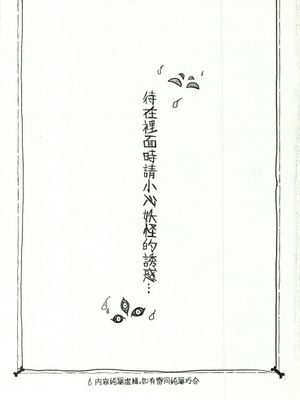 待在裡面時請小心妖怪的誘惑…
內容純屬虛構，如有雷同純屬巧合